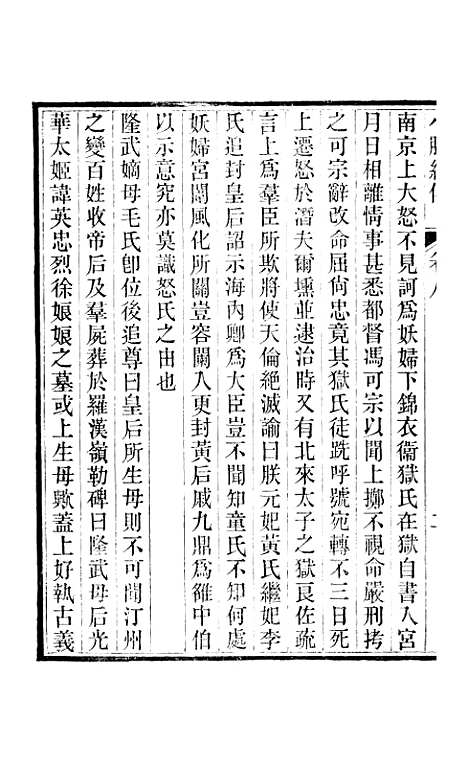 小腆紀傳
卷八
二
南京上大怒不見訶爲妖婦下錦衣衞獄氏在獄自書入宮
月日相離情事甚悉都督馮可宗以聞上擲不視命嚴刑拷
之可宗辭改命屈尙忠竟其獄氏徒跣呼號宛轉不三日死
上遷怒於潛夫爾壎並逮治時又有北來太子之獄良佐疏
言上爲羣臣所欺將使天倫絕滅諭曰朕元妃黃氏繼妃李
氏追封皇后詔示海內卿爲大臣豈不聞知童氏不知何處
妖婦宮闈風化所關豈容闌入更封黃后戚九鼎爲雒中伯
以示意究亦莫識怒氏之由也
隆武嫡母毛氏卽位後追尊曰皇后所生母則不可聞汀州
之變百姓收帝后及羣屍葬於羅漢嶺勒碑曰隆武母后光
華太姬諱英忠烈徐娘娘之墓或上生母歟蓋上好執古義